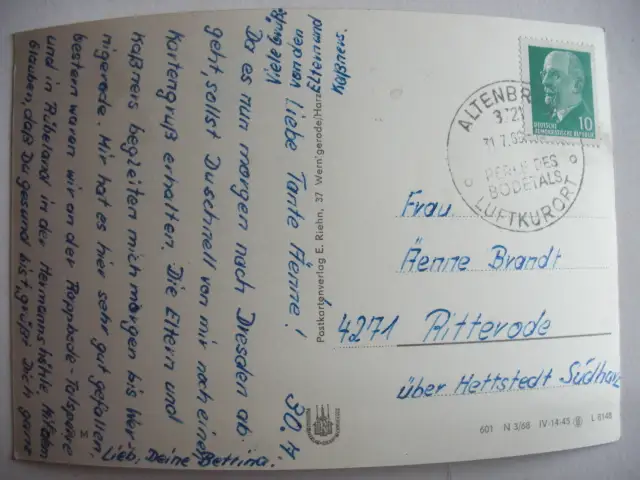 30.7.
Liebe Tante Änne!
Da es nun morgen nach Dresden ab-
geht, sollst Du schnell von mir noch einen
Kartengruß erhalten. Die Eltern und
Kaßners begleiten mich morgen bis Wer-
nigerode. Mir hat es hier sehr gut gefallen,
bestern waren wir an der Rappbode-Talsperre
und in Rübeland in der Hermannshöhle. Wir
glauben, daß Du gesund bist, grüßt Dich ganz
Lieb, Deine Bettina.
Viele
von den
Eltern und
Kaßners.
Postkartenverlag E. Riehn, 37 Wernigerode/Harz
DEUTSCHE
DEMOKRATISCHE REPUBLIK
10
ALTENBR
PERLE DES
BODETALS
LUFTKURORT
Frau
Änne Brandt
4271 Ritterode
über Hettstedt Südharz
601 N 3/68 IV-14-45 L 8148